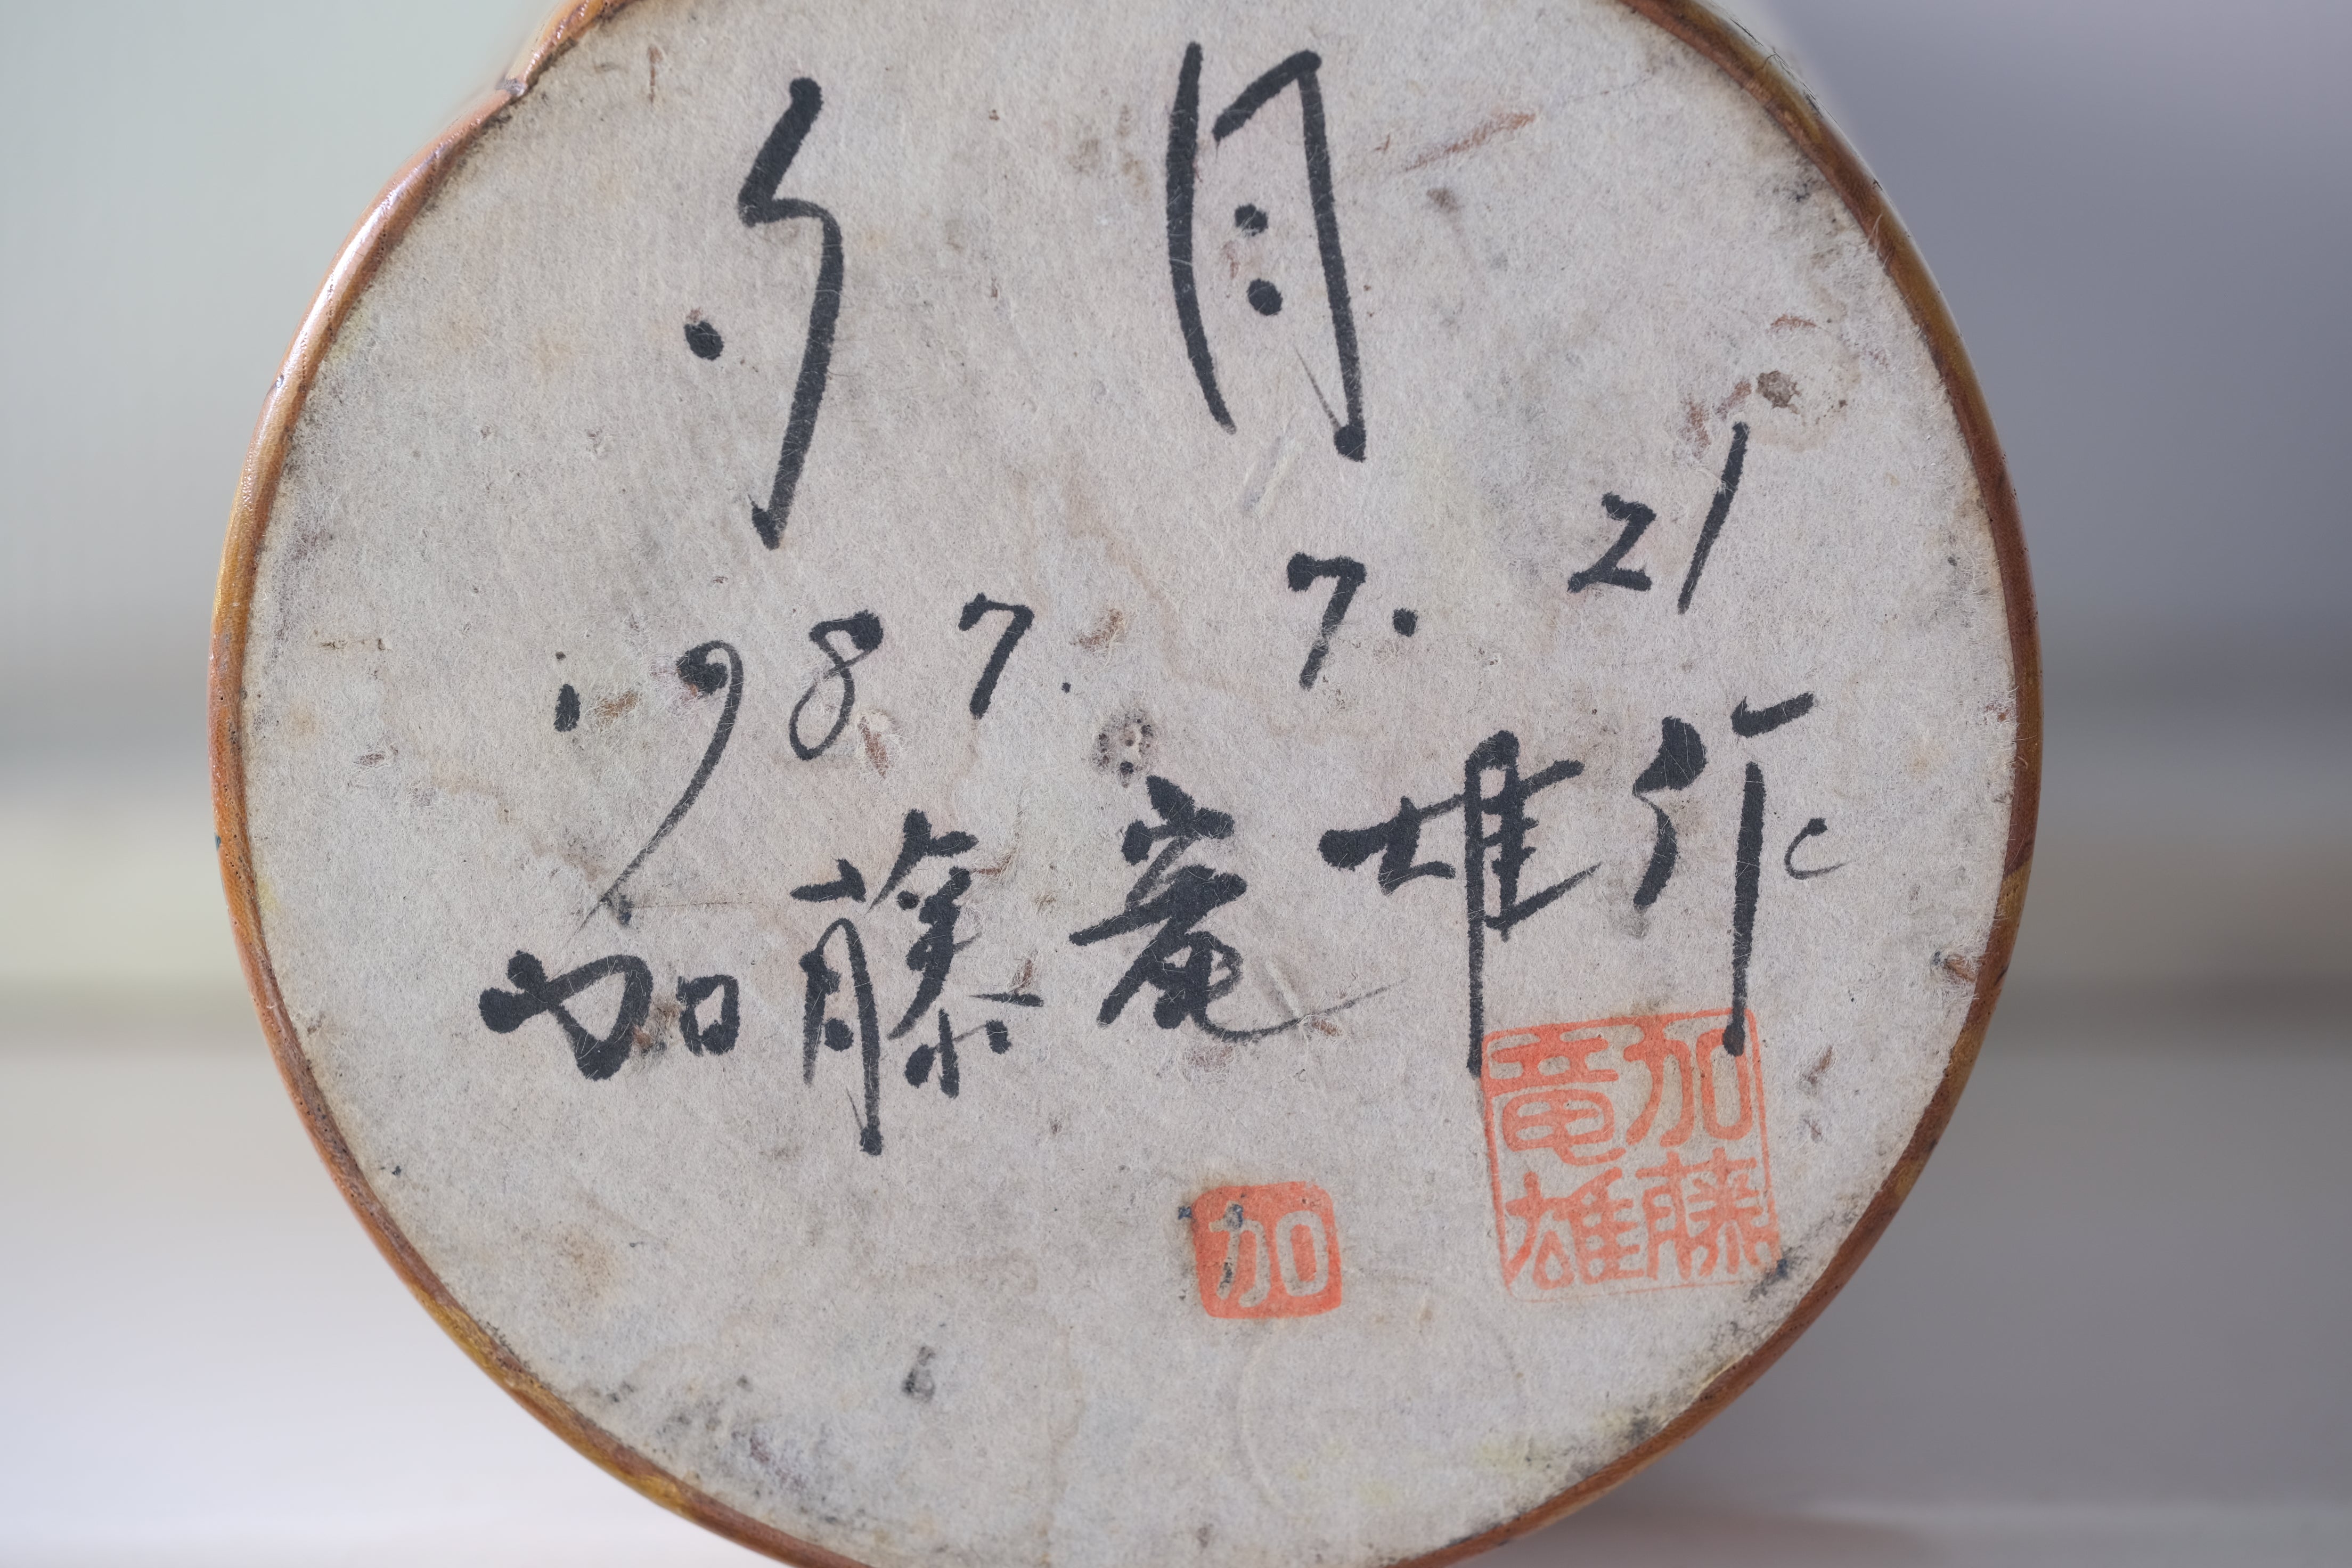 夕月
1987. 7. 21
加藤竜雄作
加藤
竜雄
加